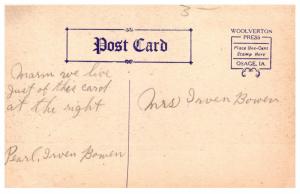 3—
WOOLVERTON
PRESS
Place One-Cent
Stamp Here
OSAGE, IA.
Post Card
we live
Just of this card
at the right
Mrs Irven Bowen
Pearl, Irven Bowen